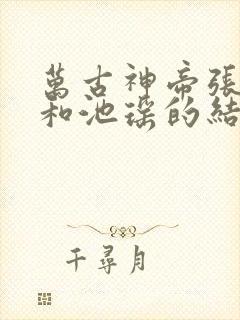 萬古神帝張
和池瑤的結
千尋月